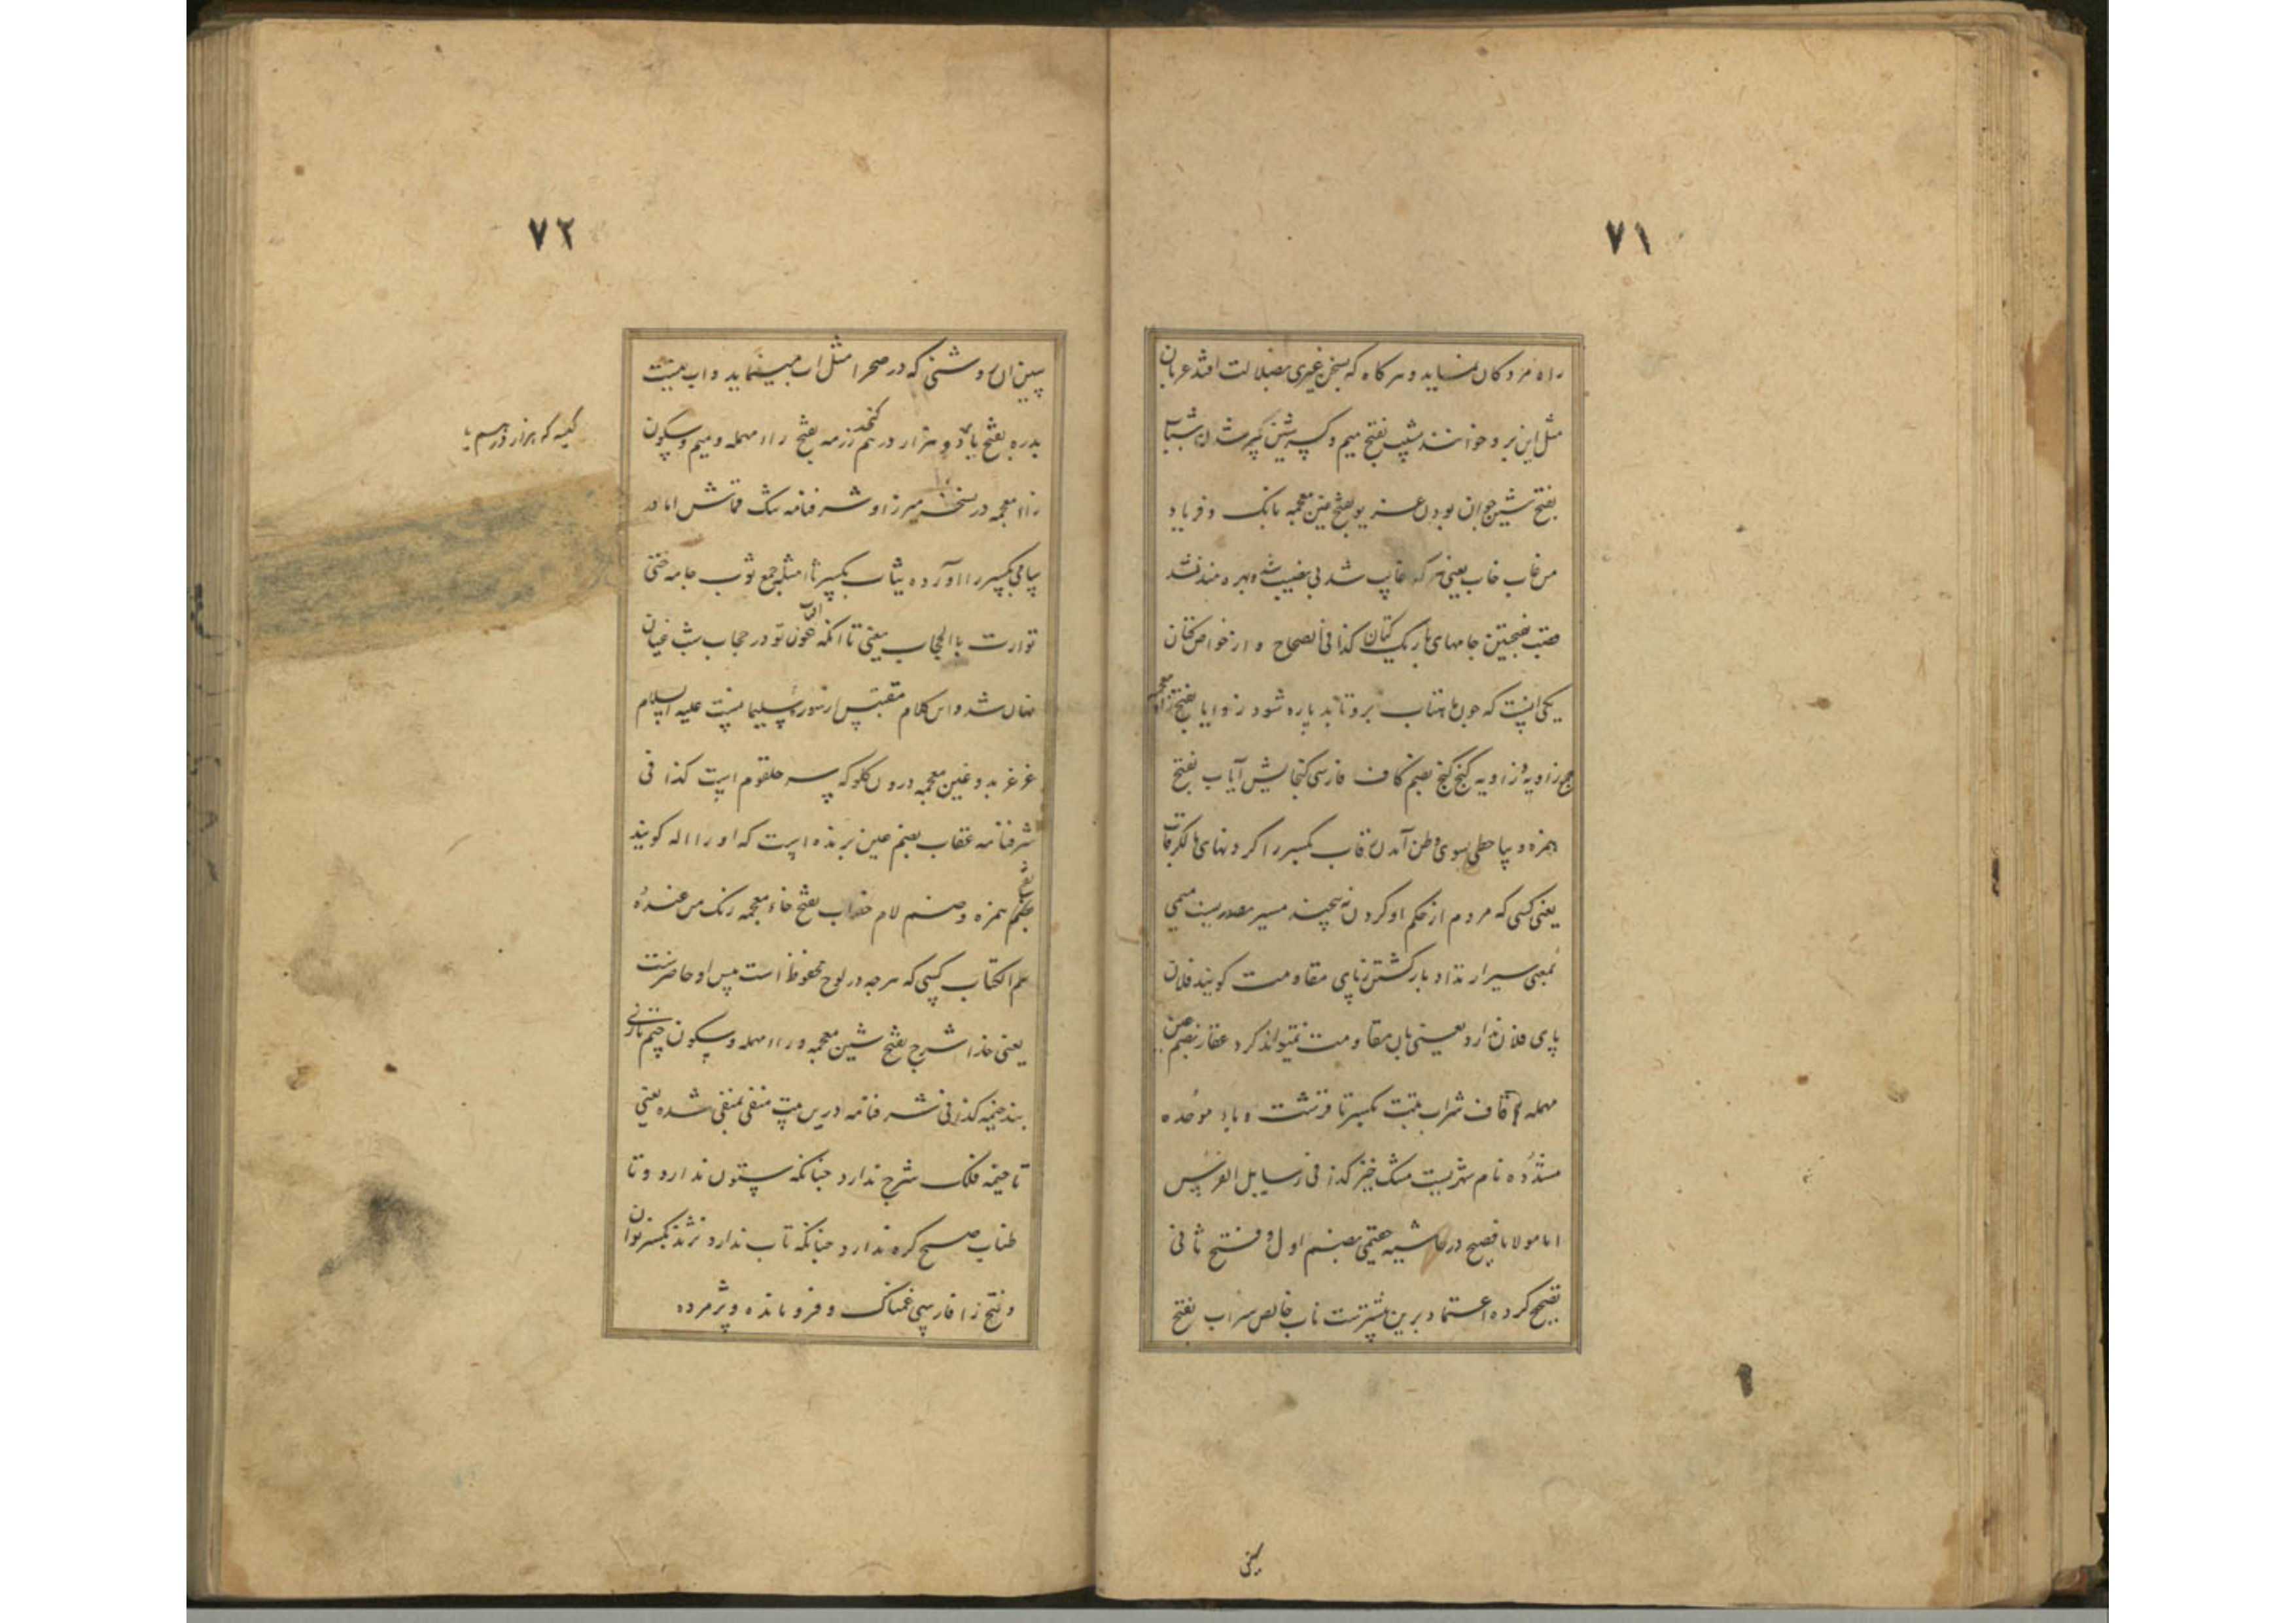 ۷۱
راه مزدکان نماید و هرکاه که بسخن غیری بضلالت افتد عریان
مثل این بر و خوانند مشیب بفتح میم و کسر شین پیر شدن شباب
بفتح شین جوان بودن غریو بفتح غین معجمه بانک و فریاد
من غاب خاب یعنی هر که غایب شد بی نصیب شد و بهره مند نشد
قصب بفتحتین جامهای باریک کتان کذا فی الصحاح و از خواص کتان
یکی اینست که چون ماهتاب برو تابد پاره شود زوایا بفتح زاء معجمه
جمع زاویه و زاویه کنج کنج بضم کاف فارسی کنجایش آیاب بفتح
همزه و یا حطی بسوی وطن آمدن رقاب بکسر را کردنهای مالک رقاب
یعنی کسی که مردم از حکم او کردن نه پیچند مسیر مصدریست میمی
بمعنی سیر ارتداد باز کشتن پای مقاومت کویند فلان
پای فلان ندارد یعنی باو مقاومت نمیتواند کرد عقار بضم عین
مهمله قاف شراب تبت بکسر تا قرشت و باء موحده
مشدده نام شهریست مشک خیز کذا فی رسایل الفرس
اما مولانا فصیح در حاشیه حقیمی بضم اول و فتح ثانی
تصحیح کرده اعتماد برین بیشترست ناب خالص سراب بفتح
سین آن روشنی که در صحرا مثل آب مینماید و آب نیست
۷۲
بدره بفتح با ده هزار درهم رزمه بفتح راء مهمله و میم و سکون
زاء معجمه در نسخه میرزا و شرفنامه تنک قماش اما در
سامی بکسر راء آورده ثیاب بکسر ثاء مثلثه جمع ثوب جامه حتی
توارت بالحجاب یعنی تا انکه چون تو در حجاب شب
نهان شد و این کلام مقتبس از سوره سلیمانیست علیه السلام
غرغر بدو غین معجمه درون کلو که سر حلقوم است کذا فی
شرفنامه عقاب بضم عین پرنده ایست که او را اله کویند
بضم همزه و ضم لام خضاب بفتح خاء معجمه رنک من عنده
علم الکتاب کسی که هرچه در لوح محفوظ است پیش او حاضرست
یعنی خدا شرج بفتح شین معجمه و راء مهمله و سکون جیم تازی
بند خیمه کذا فی شرفنامه درین بیت منفی بمنفی شده یعنی
تا خیمه فلک شرج ندارد چنانکه ستون ندارد و تا
طناب صبح کره ندارد چنانکه تاب ندارد نژند بکسر نون
و فتح زا فارسی غمناک و فرومانده و پژمرده
کیسه که هزار درهم